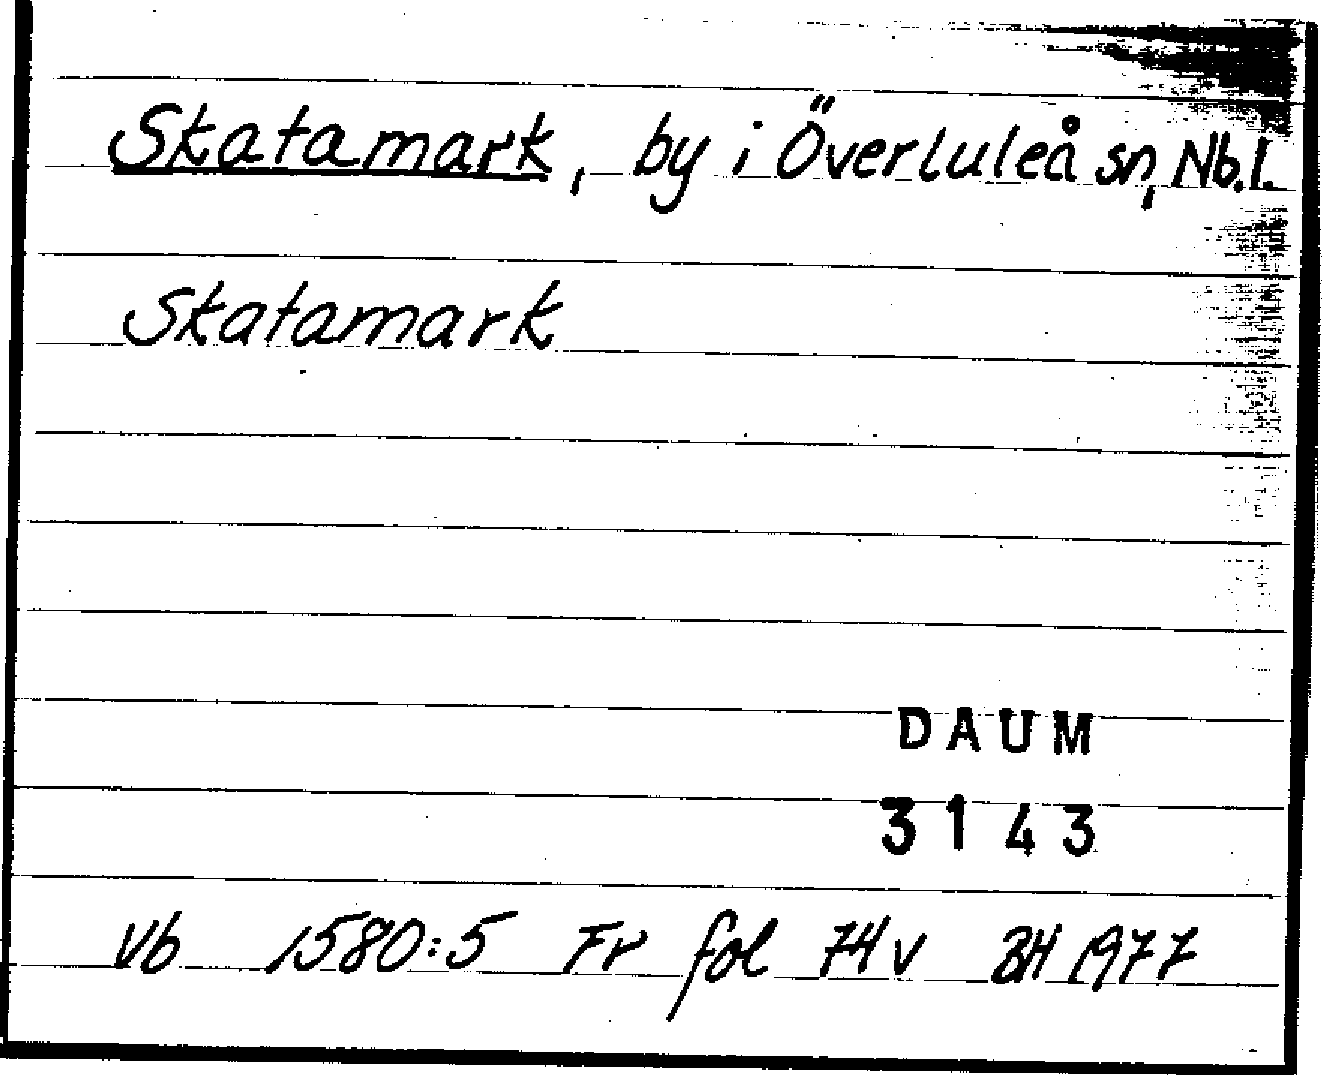 Skatamark, by i Överluleå sn, Nb.l.
Skatamark
DAUM
3143
Vb 1580:5 Fr fol 74v BH 1977